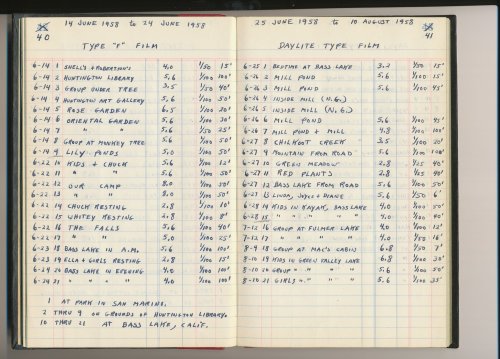 14 JUNE 1958 TO 24 JUNE 1958
40
TYPE "F" FILM
6-14 1 SHELL'S & ROBERTSON'S 4.0 1/50 15'
6-14 2 HUNTINGTON LIBRARY 5.6 1/100 100'
6-14 3 GROUP UNDER TREE 3.5 1/50 40'
6-14 4 HUNTINGTON ART GALLERY 5.6 1/100 50'
6-14 5 ROSE GARDEN 6.5 1/100 20'
6-14 6 ORIENTAL GARDEN 5.6 1/100 30'
6-14 7 " " 5.6 1/50 25'
6-14 8 GROUP AT MONKEY TREE 5.6 1/100 50'
6-14 9 LILY PONDS 5.0 1/100 50'
6-22 10 KIDS & CHUCK 5.6 1/100 12'
6-22 11 " " 5.6 1/100 50'
6-22 12 OUR CAMP 8.0 1/100 50'
6-22 13 " " 8.0 1/100 50'
6-22 14 CHUCK RESTING 2.8 1/100 10'
6-22 15 WHITEY RESTING 2.8 1/100 8'
6-22 16 THE FALLS 5.6 1/100 40'
6-22 17 " " 5.0 1/100 25'
6-23 18 BASS LAKE IN A.M. 5.6 1/100 100'
6-23 19 ELLA & GIRLS RESTING 2.8 1/100 15'
6-24 20 BASS LAKE IN EVENING 4.0 1/100 100'
6-24 21 " " " " 4.0 1/100 100'
1 AT PARK IN SAN MARINE.
2 THRU 9 ON GROUNDS OF HUNTINGTON LIBRARY.
10 THRU 21 AT BASS LAKE, CALIF.
25 JUNE 1958 TO 10 AUGUST 1958
41
DAYLITE TYPE FILM
6-25 1 BEDTIME AT BASS LAKE 3.2 1/50 15'
6-26 2 MILL POND 5.6 1/100 75'
6-26 3 MILL POND 5.6 1/100 45'
6-26 4 INSIDE MILL (N.G.)
6-26 5 INSIDE MILL (N.G.)
6-26 6 MILL POND 5.6 1/100 45'
6-26 7 MILL POND & MILL 4.8 1/100 100'
6-27 8 CHILKOOT CREEK 3.5 1/100 20'
6-27 9 MOUNTAIN FROM ROAD 5.6 1/100
6-27 10 GREEN MEADOW 2.8 1/25 40'
6-27 11 RED PLANTS 2.8 1/25 40'
6-27 12 BASS LAKE FROM ROAD 5.6 1/100 50'
6-27 13 LINDA, JOYCE & DIANE 5.6 1/50 6'
6-28 14 KIDS IN KAYAK, BASS LAKE 4.0 1/100 50'
6-28 15 " " " " " 4.0 1/100 40'
7-12 16 GROUP AT FULMER LAKE 4.0 1/100 12'
7-12 17 " " " " 4.0 1/50 16'
8-9 18 GROUP AT MAC'S CABIN 6.8 1/50 7'
8-10 19 KIDS IN GREEN VALLEY LAKE 6.8 1/100 30'
8-10 20 GROUP " " " " 5.6 1/100 50'
8-10 21 GIRLS " " " " 5.6 1/100 35'